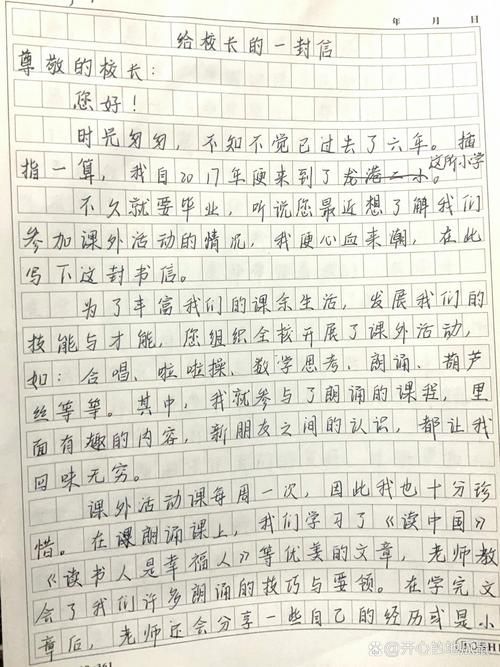 年 月 日
给校长的一封信
尊敬的校长：
您好！
时光匆匆，不知不觉已过去了六年。掐
指一算，我自2017年便来到了龙港二小。这所小学
不久就要毕业，听说您最近想了解我们
参加课外活动的情况，我便心血来潮，在此
写下这封书信。
为了丰富我们的课余生活，发展我们的
技能与才能，您组织全校开展了课外活动，
如：合唱、啦啦操、数学思考、朗诵、葫芦
丝等等。其中，我就参与了朗诵的课程，里
面有趣的内容，新朋友之间的认识，都让我
回味无穷。
课外活动课每周一次，因此我也十分珍
惜。在朗诵课上，我们学习了《读中国》
《读书人是幸福人》等优美的文章，老师教
会了我们许多朗诵的技巧与要领。在学完文
章后，老师还会分享一些自己的经历或是小